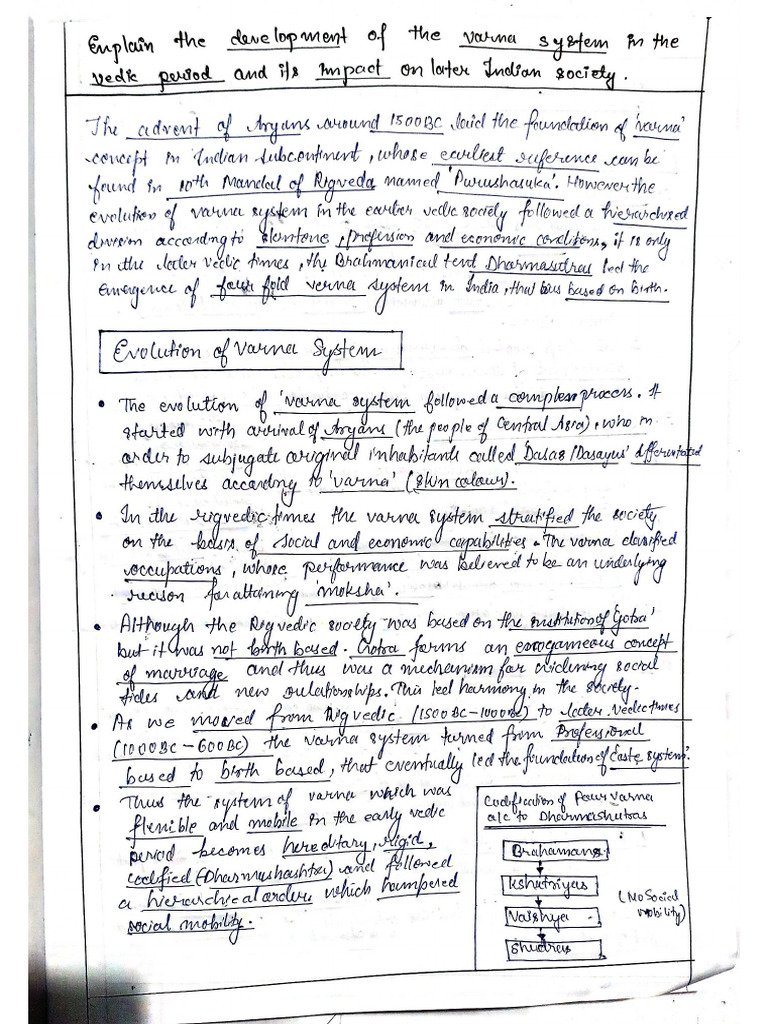 Explain the development of the varna system in the
vedic period and its impact on later Indian society.
The advent of Aryans around 1500BC laid the foundation of 'varna'
concept in Indian subcontinent, whose earliest reference can be
found in 10th Mandal of Rigveda named 'Purushasuka'. However the
evolution of varna system in the earlier vedic society followed a hierarchised
division accordng to skintone, profession and economic conditions, it is only
in the later vedic times, the Brahmanical text Dharmasutras led the
emergence of four fold verna system in India, that was based on birth.
Evolution of Varna System
• The evolution of 'varna system' followed a complex process. It
started with arrival of Aryans (the people of Central Asia), who in
order to subjugate original inhabitants called 'Dasas/Dasayus' differentiated
themselves accordng to 'varna' (skin colour).
• In the rigvedic times the varna system stratified the society
on the basis of social and economic capabilities. The varna classified
occupations, whose performance was believed to be an underlying
reason for attaining 'moksha'.
• Although the Rigvedic society was based on the institution of 'Gotra'
but it was not birth based. Gotra forms an exogameous concept
of marriage and thus was a mechanism for widening social
tides and new relationships. This led harmony in the society.
• As we moved from Rigvedic (1500BC-1000BC) to later vedic times
(1000BC-600BC) the varna system turned from Professional
based to birth based, that eventually led the foundation of 'Caste system'.
• Thus the system of varna which was
flexible and mobile in the early vedic
period becomes hereditary, rigid,
codified (Dharmashashtra) and followed
a hierarchical order which hampered
social mobility.
Codification of Four Varna
a/c to Dharmashutras
Brahamans
Kshatriyas
Vaishya
Shudras
(No Social
Mobility)